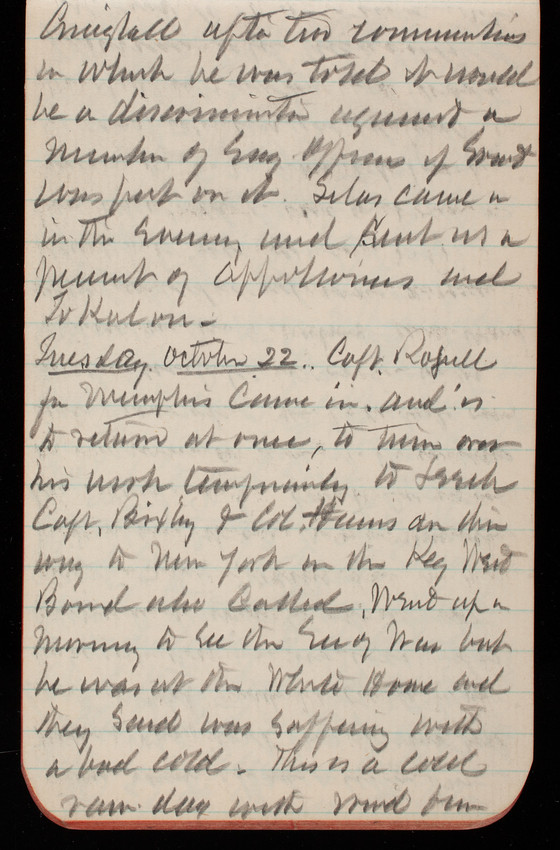 after two communications
in which he was told it would
be a discrimination against a
Member of Eng Officers if Grant
was put on it. Silas came
in the Evening and
of apollinaris and
To Kalon -
Tuesday October 22.. Capt. Rossell
fr Memphis Came in. and is
to return at once, to turn over
his work temporarily to
Capt, Bixby & Col. Hains are on
way to New York on the Key West
Board also Called, Went up in
Morning to See the Secy War but
he was at the White House and
they Said was Suffering with
a bad cold. This is a cold
raw day with wind